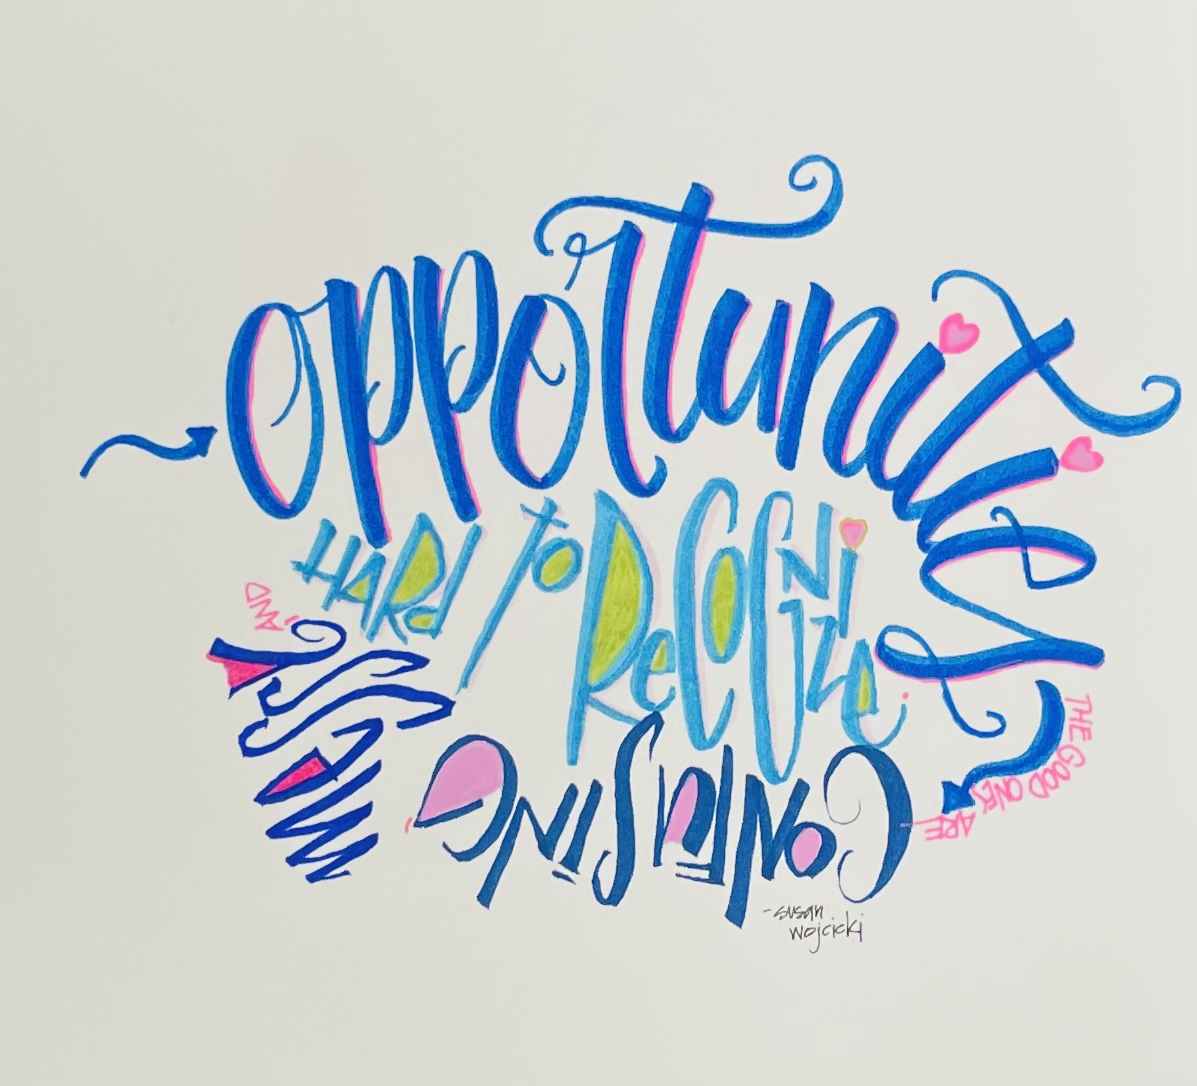 opportunities
THE GOOD ONES
ARE
CONFUSING,
MESSY,
AND
HaRd To ReCOGNiZe.
-susan
wojcicki